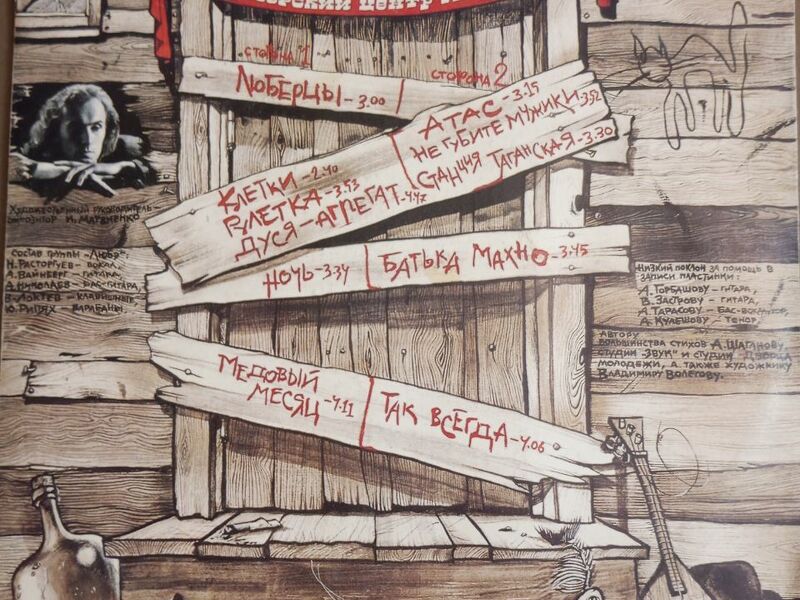 центр
сторона 1
Люберцы - 3.00
Клетки - 2.40
Рулетка - 3.53
Дуся-агрегат - 4.47
Ночь - 3.34
Медовый
месяц - 4.11
сторона 2
Атас - 3.15
Не губите мужики - 3.52
Станция Таганска-я - 3.30
Батька Махно - 3.45
Так всегда - 4.06
Художественный руководитель -
композитор И. Матвиенко
Состав группы "Любэ":
Н. Расторгуев - вокал,
В. Локтев - клавишные,
Ю. Рипях - барабаны.
Низкий поклон за помощь в
записи пластинки:
А. Торбашову - гитара,
В. Застрову - гитара,
А. Тарасову - бас-вокал, хор,
А. Кулешову - тенор,
Автору
большинства стихов А. Шаганову,
студии "Звук" и студии Дворца
молодежи, а также художнику
Владимиру Волегову.